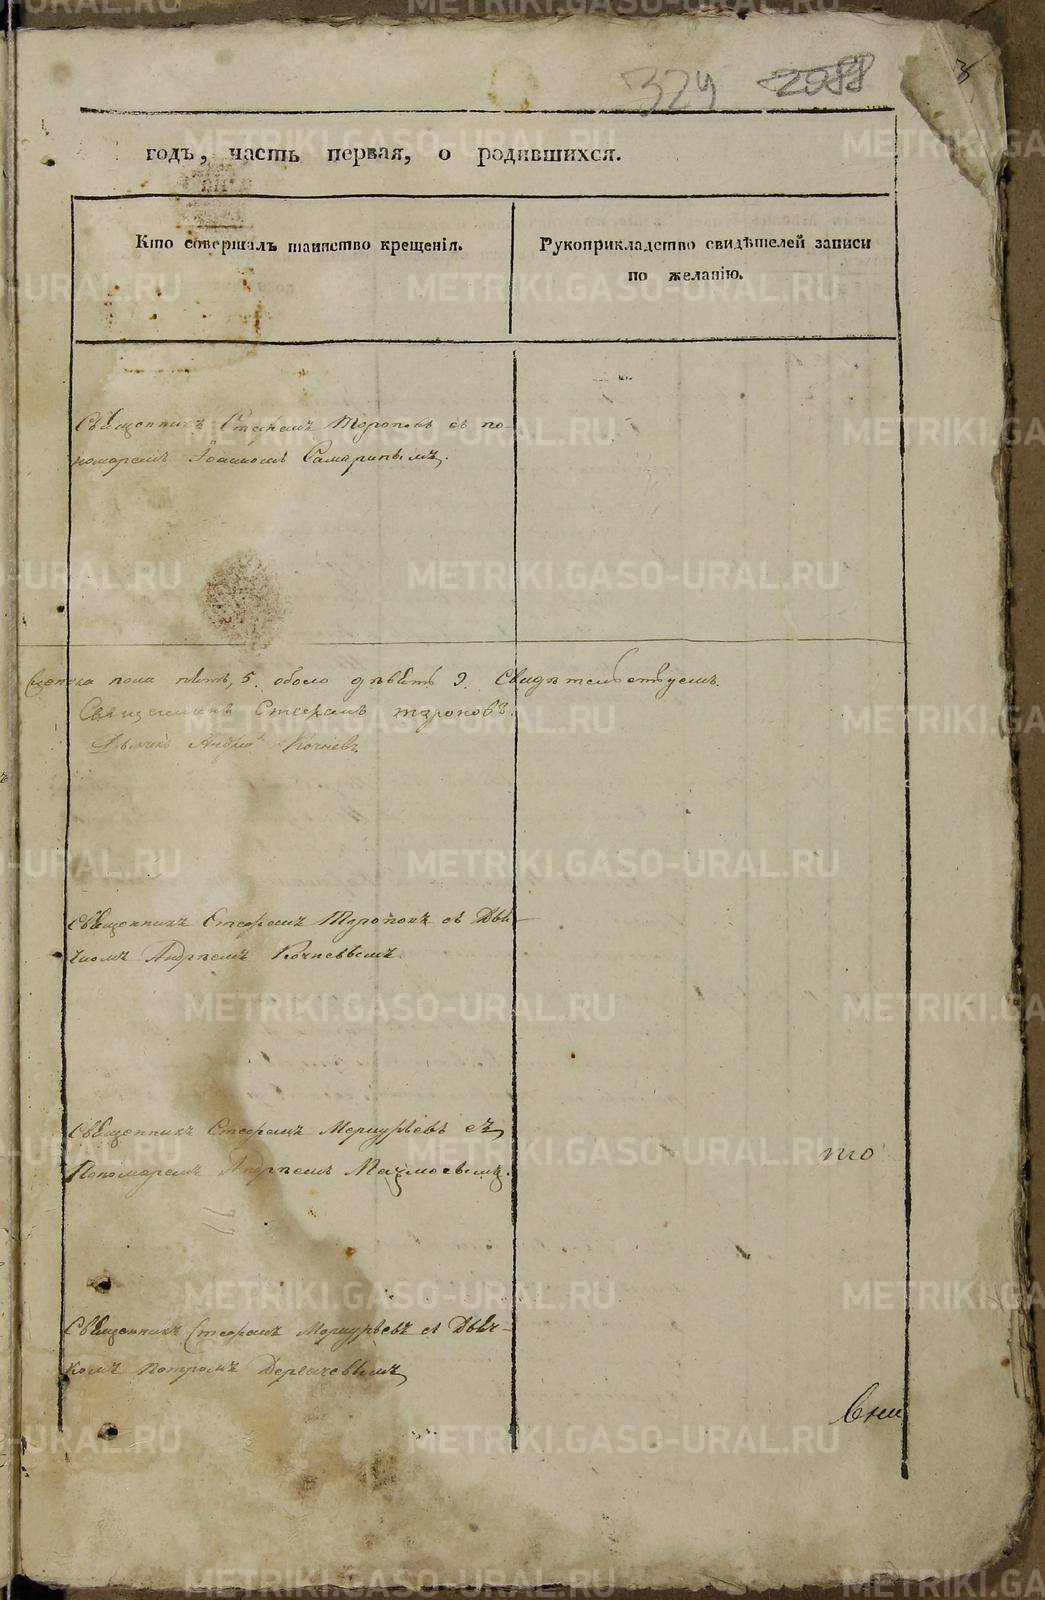 324 2088
3
годъ, часть первая, о родившихся.
Кто совершалъ таинство крещенія.
Рукоприкладство свидѣтелей записи
по желанію.
Священникъ Стефанъ Торопов съ по-
номаремъ Іоанномъ Самаринымъ.
пола пять, 5. оболо девять 9. Свидѣтельствуемъ.
Священникъ Стефанъ тороповъ.
Дьячекъ Андрей Кочневъ
Священникъ Стефанъ Торопов съ Дья-
чкомъ Андреемъ Кочневымъ.
Священникъ Стефанъ Меркурьевъ съ
Пономаремъ Андреемъ
тто
Священникъ Стефанъ Меркурьевъ съ Дьяч-
комъ Петромъ Дергачевымъ
METRIKI.GASO-URAL.RU